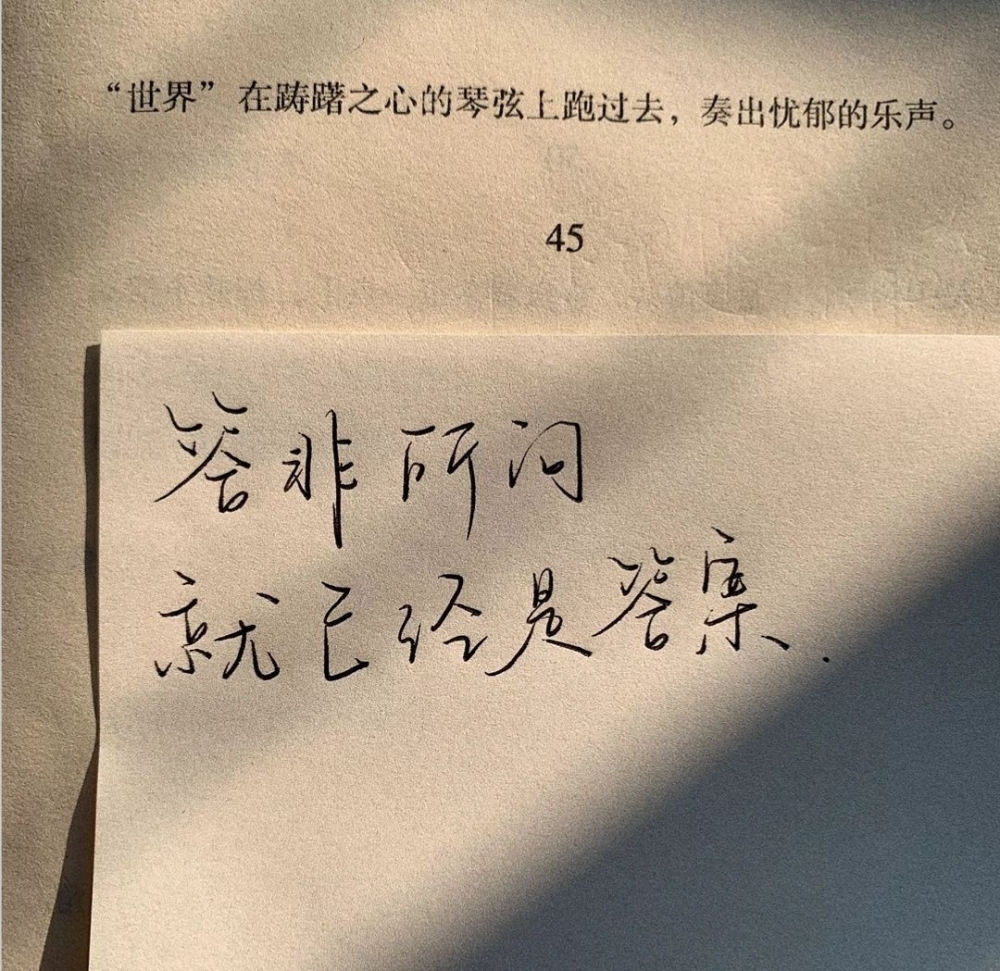 “世界”在踌躇之心的琴弦上跑过去，奏出忧郁的乐声。
45
答非所问
就已经是答案.